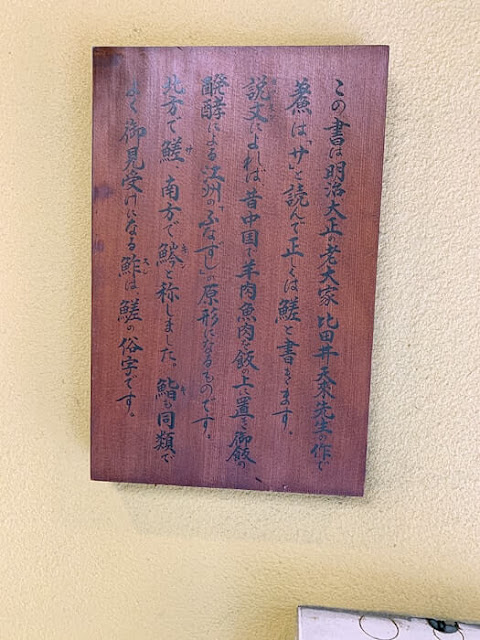 この書は明治大正の老大家 比田井天来先生の作で
は「サ」と読んで正しくは鹺と書きます。
説文によれば 昔中国で羊肉魚肉を飯の上に置き御飯の
醗酵による江州の「ふなずし」の原形になるものです。
北方で鹺 南方で魿と称しました。鮨も同類で
よく御見受けになる鮓は、鹺の俗字です。